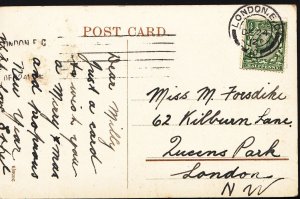 POST CARD.
LONDON. E.
LONDON E C
Dear Milly
Just a card
to wish you
a Merry Xmas
and prosperous
New Year
Miss M. Forsdike
62 Kilburn Lane.
Queens Park
London
N W